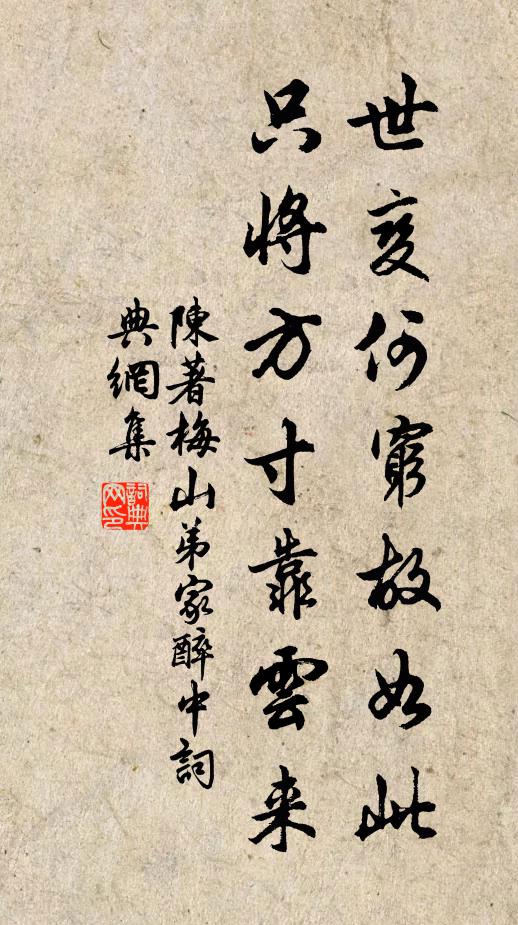 世变何窮故如此
只將方寸靠雲来
陳著梅山弟家醉中詞
典網集
詞典網印